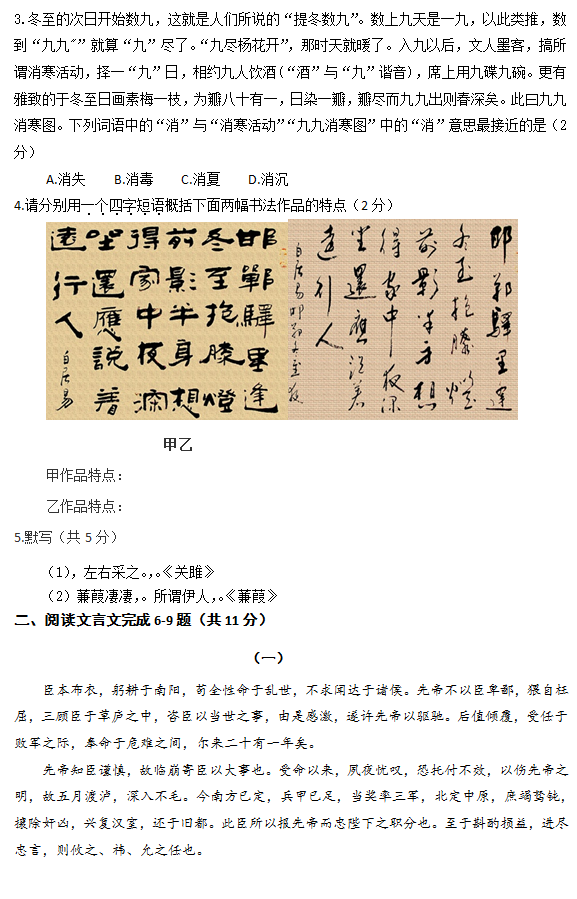 3.冬至的次日开始数九，这就是人们所说的“提冬数九”。数上九天是一九，以此类推，数
到“九九"”就算“九”尽了。“九尽杨花开”，那时天就暖了。入九以后，文人墨客，搞所
谓消寒活动，择一“九”日，相约九人饮酒(“酒”与“九”谐音)，席上用九碟九碗。更有
雅致的于冬至日画素梅一枝，为瓣八十有一，日染一瓣，瓣尽而九九出则春深矣。此曰九九
消寒图。下列词语中的“消”与“消寒活动”“九九消寒图”中的“消”意思最接近的是（2
分）
A.消失 B.消毒 C.消夏 D.消沉
4.请分别用一个四字短语概括下面两幅书法作品的特点（2分）
邯郸驿里逢
冬至抱膝灯
前影半身想
得家中夜深
坐還應説着
遠行人
白居易
邯郸驛里逢
冬至抱膝燈
前影半身想
得家中夜深
坐還應説着
遠行人
白居易邯郸冬至夜
甲乙
甲作品特点：
乙作品特点：
5.默写（共5分）
（1），左右采之。，。《关雎》
（2）蒹葭凄凄，。所谓伊人，。《蒹葭》
二、阅读文言文完成6-9题（共11分）
（一）
臣本布衣，躬耕于南阳，苟全性命于乱世，不求闻达于诸侯。先帝不以臣卑鄙，猥自枉
屈，三顾臣于草庐之中，咨臣以当世之事，由是感激，遂许先帝以驱驰。后值倾覆，受任于
败军之际，奉命于危难之间，尔来二十有一年矣。
先帝知臣谨慎，故临崩寄臣以大事也。受命以来，夙夜忧叹，恐托付不效，以伤先帝之
明，故五月渡泸，深入不毛。今南方已定，兵甲已足，当奖率三军，北定中原，庶竭驽钝，
攘除奸凶，兴复汉室，还于旧都。此臣所以报先帝而忠陛下之职分也。至于斟酌损益，进尽
忠言，则攸之、祎、允之任也。